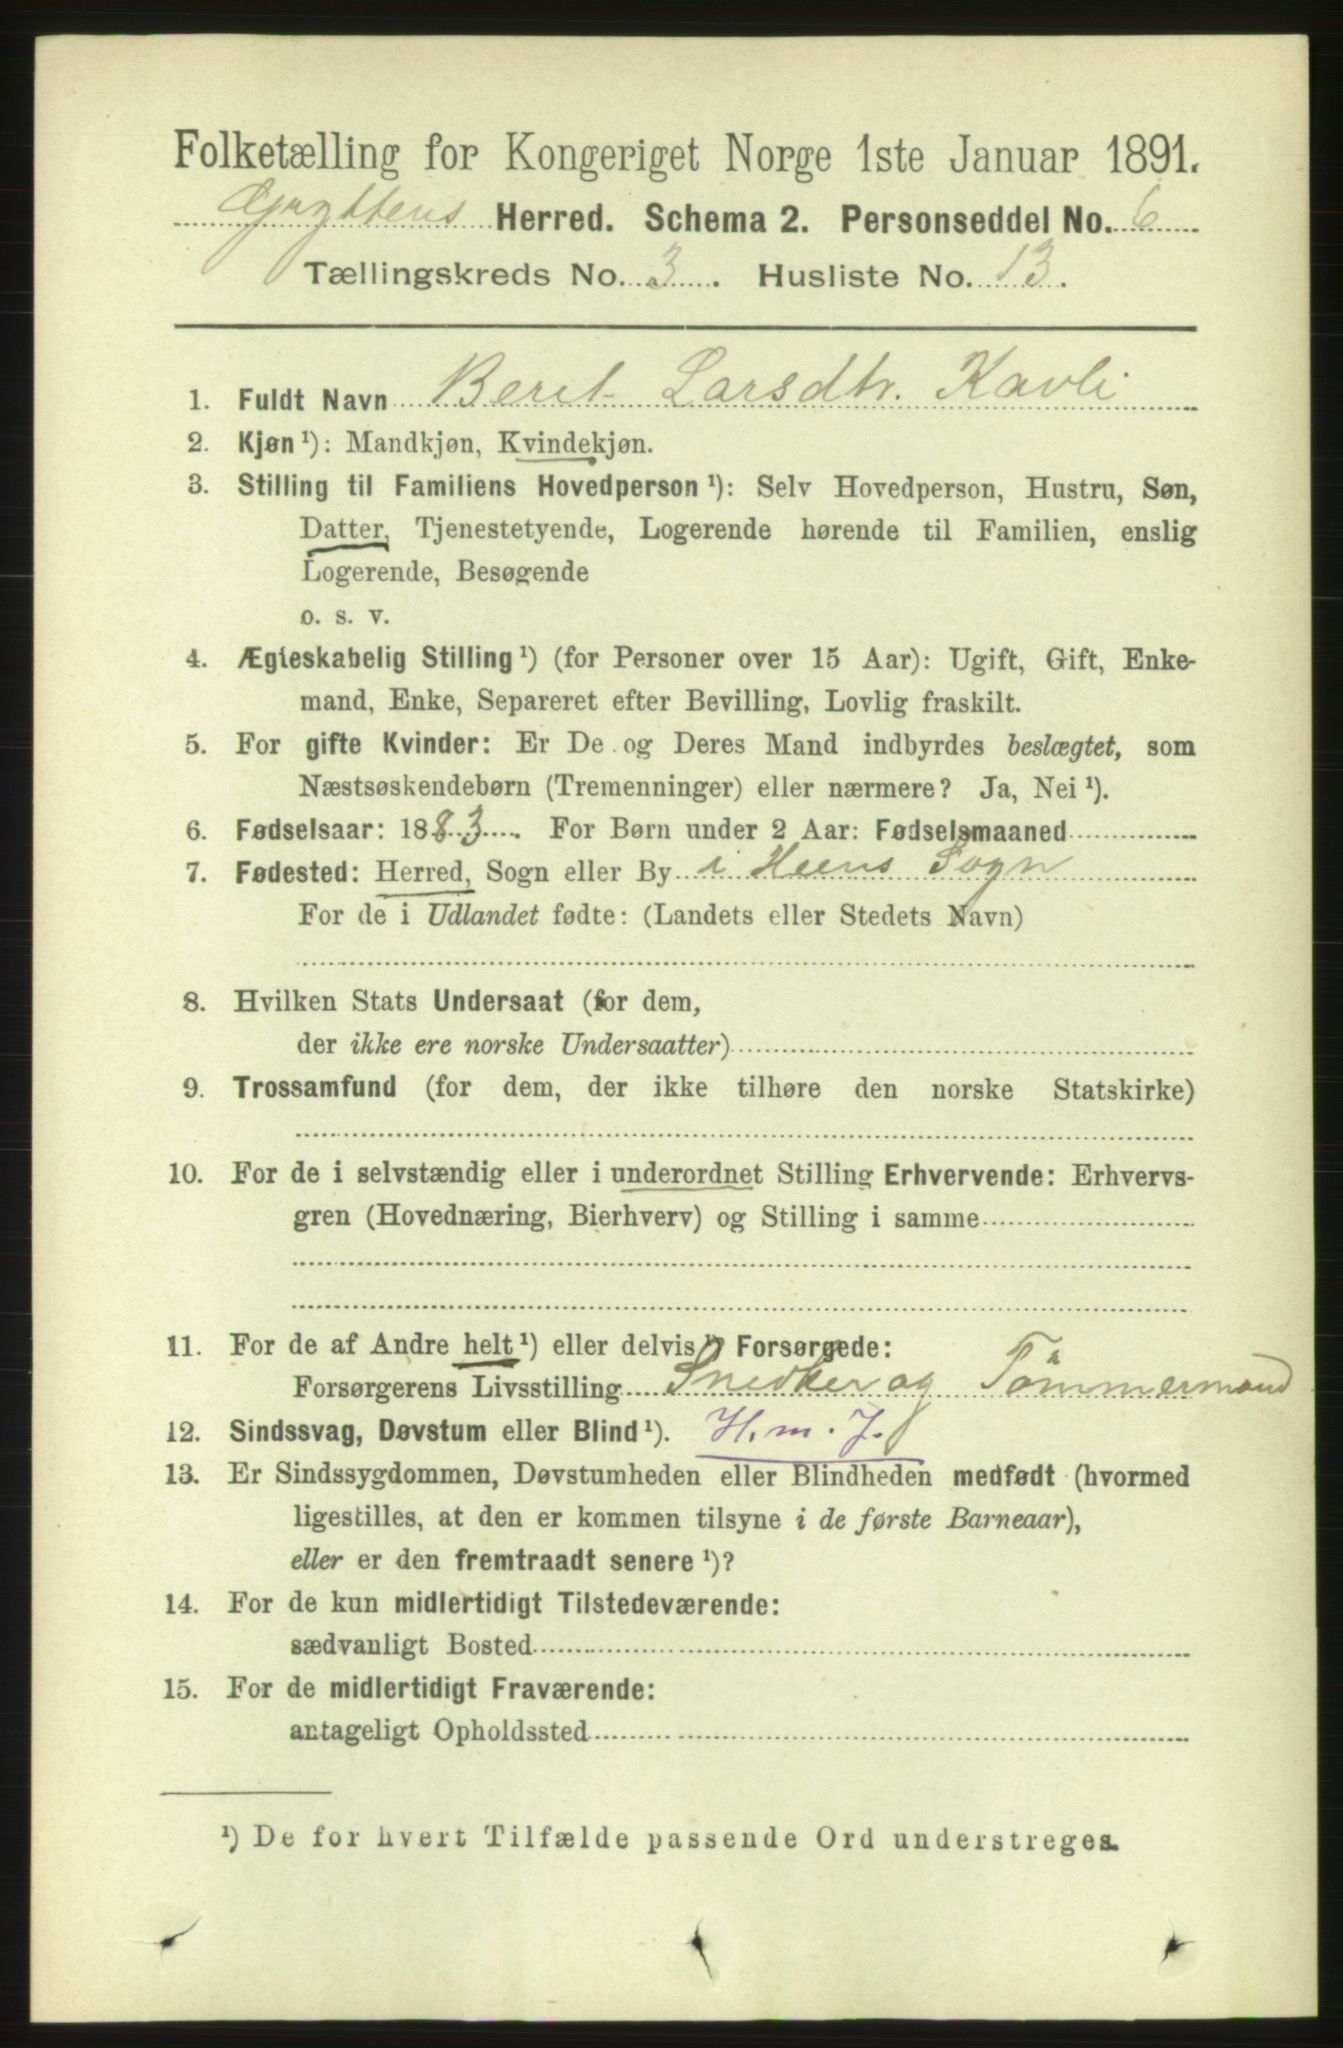 Folketælling for Kongeriget Norge 1ste Januar 1891.
Gryttens Herred. Schema 2. Personseddel No. 6
Tællingskreds No. 3. Husliste No. 13.
1. Fuldt Navn Beret Larsdtr. Kavli
2. Kjøn ¹): Mandkjøn, Kvindekjøn.
3. Stilling til Familiens Hovedperson ¹): Selv Hovedperson, Hustru, Søn,
Datter, Tjenestetyende, Logerende hørende til Familien, enslig
Logerende, Besøgende
o. s. v.
4. Ægteskabelig Stilling ¹) (for Personer over 15 Aar): Ugift, Gift, Enke-
mand, Enke, Separeret efter Bevilling, Lovlig fraskilt.
5. For gifte Kvinder: Er De og Deres Mand indbyrdes beslægtet, som
Næstsøskendebørn (Tremenninger) eller nærmere? Ja, Nei ¹).
6. Fødselsaar: 1883. For Børn under 2 Aar: Fødselsmaaned
7. Fødested: Herred, Sogn eller By i Heens Sogn
For de i Udlandet fødte: (Landets eller Stedets Navn)
8. Hvilken Stats Undersaat (for dem,
der ikke ere norske Undersaatter)
9. Trossamfund (for dem, der ikke tilhøre den norske Statskirke)
10. For de i selvstændig eller i underordnet Stilling Erhvervende: Erhvervs-
gren (Hovednæring, Bierhverv) og Stilling i samme
11. For de af Andre helt ¹) eller delvis ¹) Forsørgede:
Forsørgerens Livsstilling Snedker og Tømmermand
12. Sindssvag, Døvstum eller Blind ¹). H. m. J.
13. Er Sindssygdommen, Døvstumheden eller Blindheden medfødt (hvormed
ligestilles, at den er kommen tilsyne i de første Barneaar),
eller er den fremtraadt senere ¹)?
14. For de kun midlertidigt Tilstedeværende:
sædvanligt Bosted
15. For de midlertidigt Fraværende:
antageligt Opholdssted
¹) De for hvert Tilfælde passende Ord understreges.